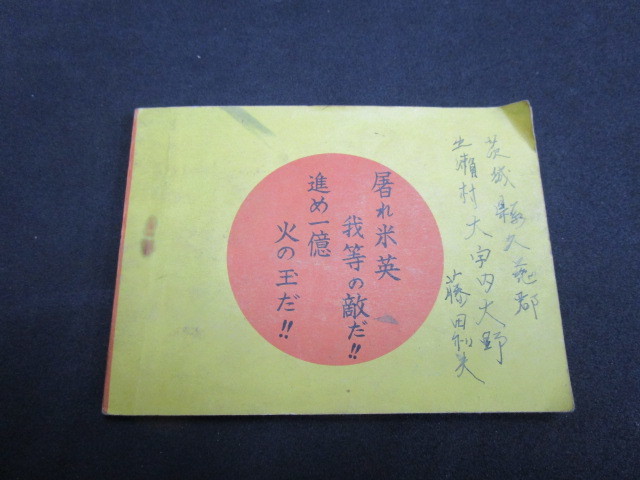 茨城縣久慈郡
生瀬村大字内大野
藤田利夫
屠れ米英
我等の敵だ!!
進め一億
火の玉だ!!